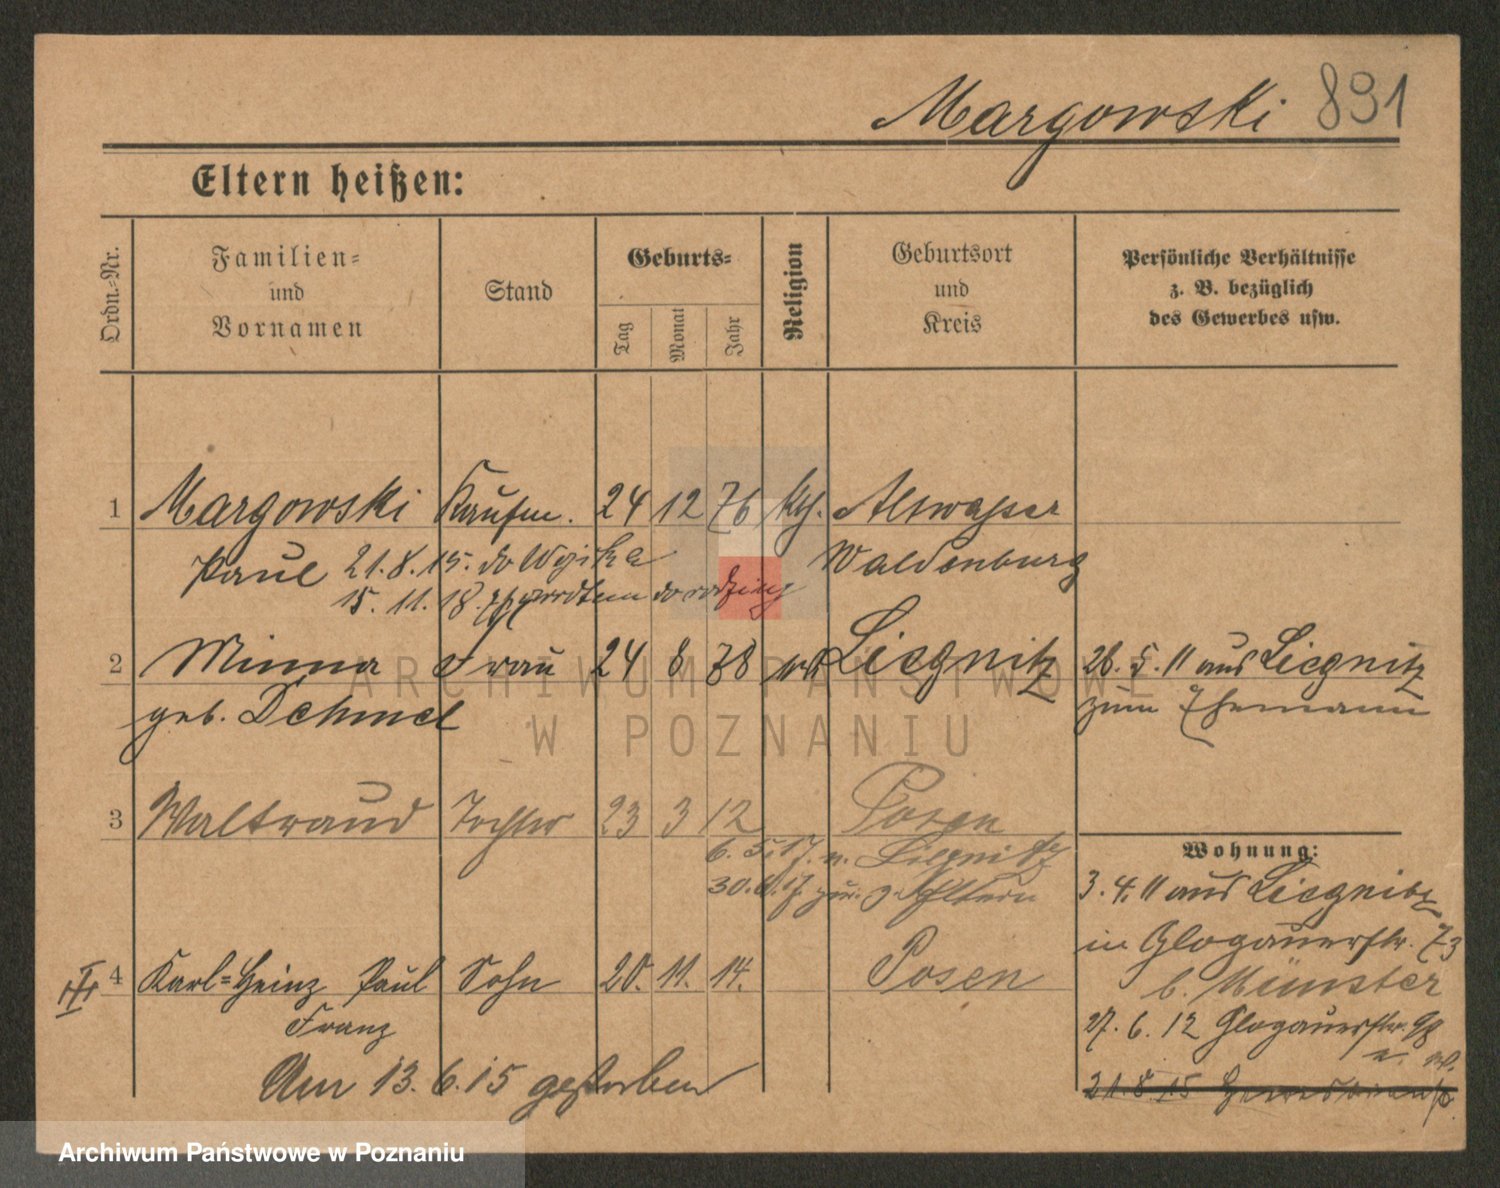 Margowski 891
Eltern heißen:
Ordn.-Nr.
Familien-
und
Vornamen
Stand
Geburts-
Tag
Monat
Jahr
Religion
Geburtsort
und
Kreis
Persönliche Verhältnisse
z. B. bezüglich
des Gewerbes usw.
1 Margowski Kaufm. 24 12 76 kth. Altwasser
Paul 21.8.15. do Wojska Waldenburg
15.11.18 z powrotem do rodziny
2 Minna Frau 24 8 78 Liegnitz 26.5.11 aus Liegnitz
geb. Dehmel zum Ehemann
3 Waltraud Tochter 23 3 12 Posen
6.5.17. n. Liegnitz
30.6.17. zur. z. Eltern
Wohnung:
3.4.11 aus Liegnitz
in Glogauerstr. 73
b. Münster
4 Karl-Heinz Paul Sohn 20. 11. 14. Posen
Franz
27.6.12 Glogauerstr. 98
Am 13.6.15 gestorben
21.8.15
ARCHIWUM PAŃSTWOWE
W POZNANIU
Archiwum Państwowe w Poznaniu